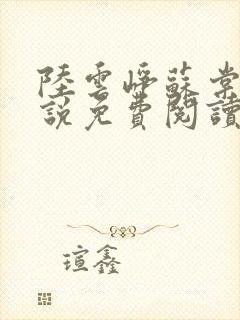 陸雲崢蘇棠
說免費閱讀
瑄鑫